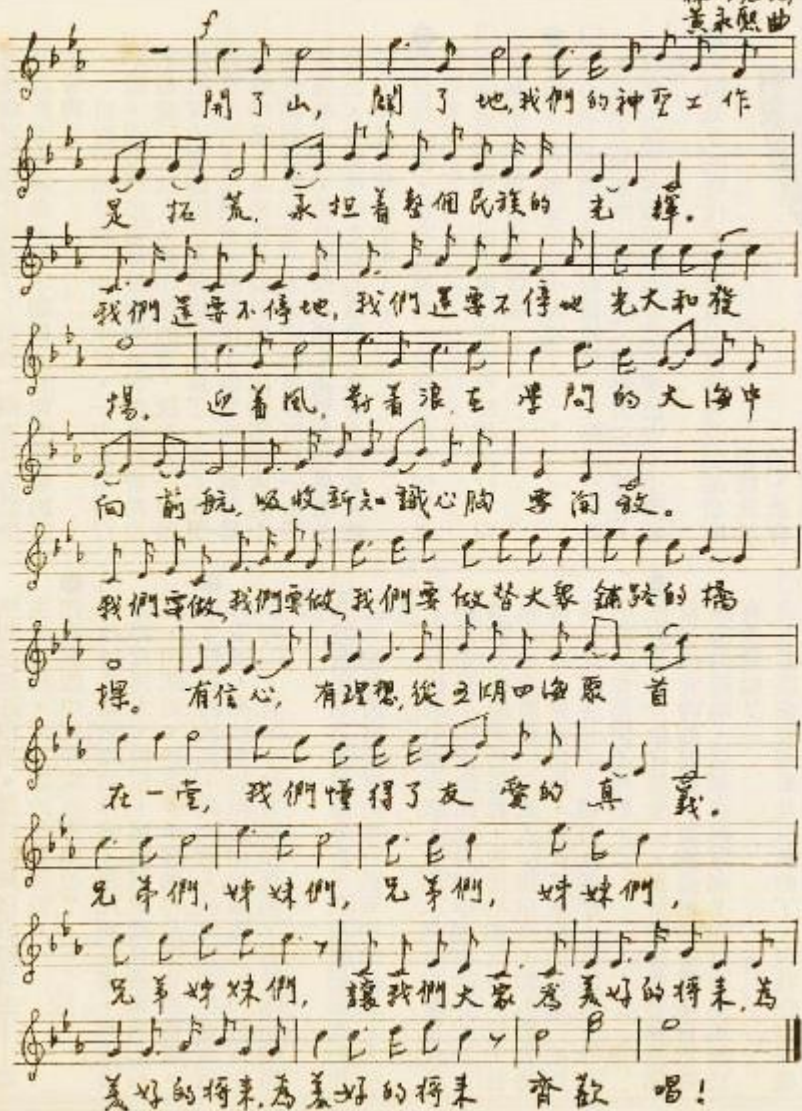 黃永熙曲
f
開了山, 闢了地, 我們的神聖工作
是拓荒, 承担着整個民族的光輝。
我們還要不停地, 我們還要不停地 光大和發
揚。 迎着風, 對着浪, 在學問的大海中
向前航, 吸收新知識心胸要開放。
我們要做, 我們要做, 我們要做替大衆鋪路的橋
樑。 有信心, 有理想, 從五湖四海聚首
在一堂, 我們懂得了友愛的真義。
兄弟們, 姊妹們, 兄弟們, 姊妹們,
兄弟姊妹們, 讓我們大家為美好的將来, 為
美好的將来, 為美好的將来 齊歡唱!